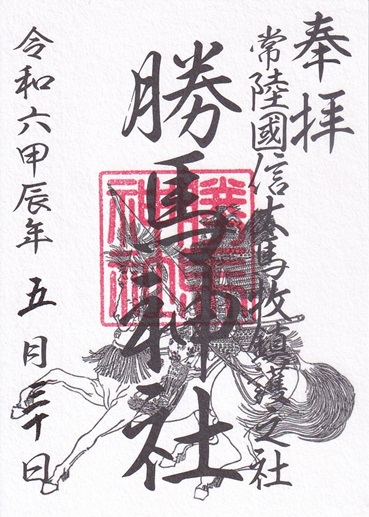 奉拝
常陸國信太馬牧鎮護之社
勝馬神社
勝馬
神社
令和六甲辰年五月三十日